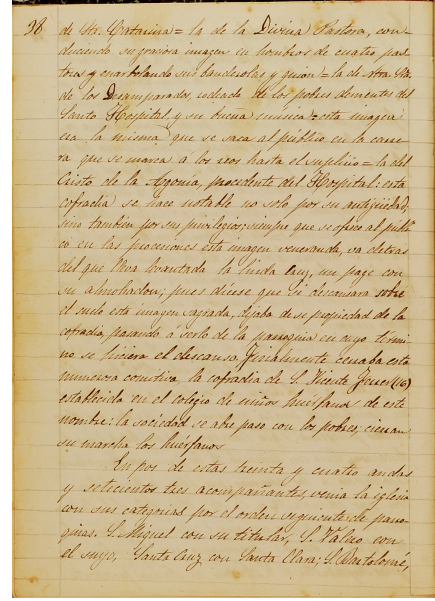 98
de Sta. Catarina = la de la Divina Pastora, con-
duciendo su graciosa imagen en hombros de cuatro pas-
tores y enarbolando sus banderolas y guion = la de ntra. Sra.
de los Desamparados, rodeada de los pobres dementes del
Santo Hospital y su buena musica = esta imagen
era la misma que se saca al público en la carre-
ra que se marca a los reos hasta el suplicio = la del
Cristo de la Agonía, procedente del Hospital: esta
cofradia se hace notable no solo por su antigüedad,
sino tambien por sus privilegios; siempre que se ofrece al públi-
co en las procesiones esta imagen veneranda, va detras
del que lleva levantada la linda cruz, un page con
su almohadon; pues dicese que si descansara sobre
el suelo esta imagen sagrada, dejaba de ser propiedad de la
cofradia, pasando á serlo de la parroquia en cuyo térmi-
no se hiciera el descanso. Finalmente cerraba esta
numerosa comitiva la cofradia de S. Vicente Ferrer (16)
establecida en el colegio de niños huérfanos de este
nombre: la sociedad se abre paso con los pobres; cierran
su marcha los huérfanos.
En pos de estas treinta y cuatro andas
y setecientos tres acompañantes, venia la iglesia
con sus categorias por el orden siguiente de parro-
quias. S. Miguel con su titular, S. Valero con
el suyo, Santa Cruz con Santa Clara; S. Bartolomé,